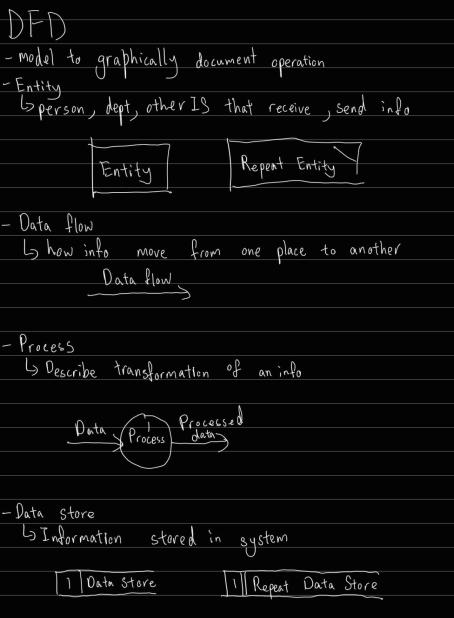 DFD
- model to graphically document operation
- Entity
↳ person, dept, other IS that receive, send info
Entity
Repeat Entity
- Data flow
↳ how info move from one place to another
Data flow
- Process
↳ Describe transformation of an info
Data
1
Process
Processed
data
- Data store
↳ Information stored in system
1 Data Store
1 Repeat Data Store